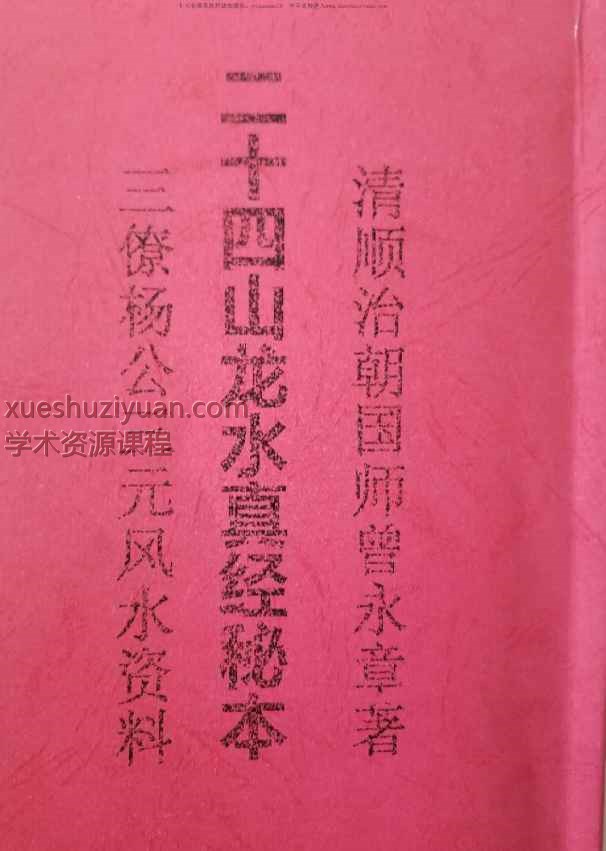 清顺治朝国师曾永章著
二十四山龙水真经秘本
三僚杨公元风水资料
xueshuziyuan.com
学术资源课程